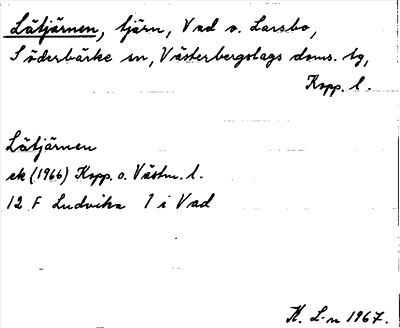 Låtjärnen, tjärn, Vad o. Larsbo,
Söderbärke sn, Västerbergslags doms. tg,
Kopp. l.
Låtjärnen
ek (1966) Kopp. o. Västm. l.
12 F Ludvika 1 i Vad
K. L-n 1967.